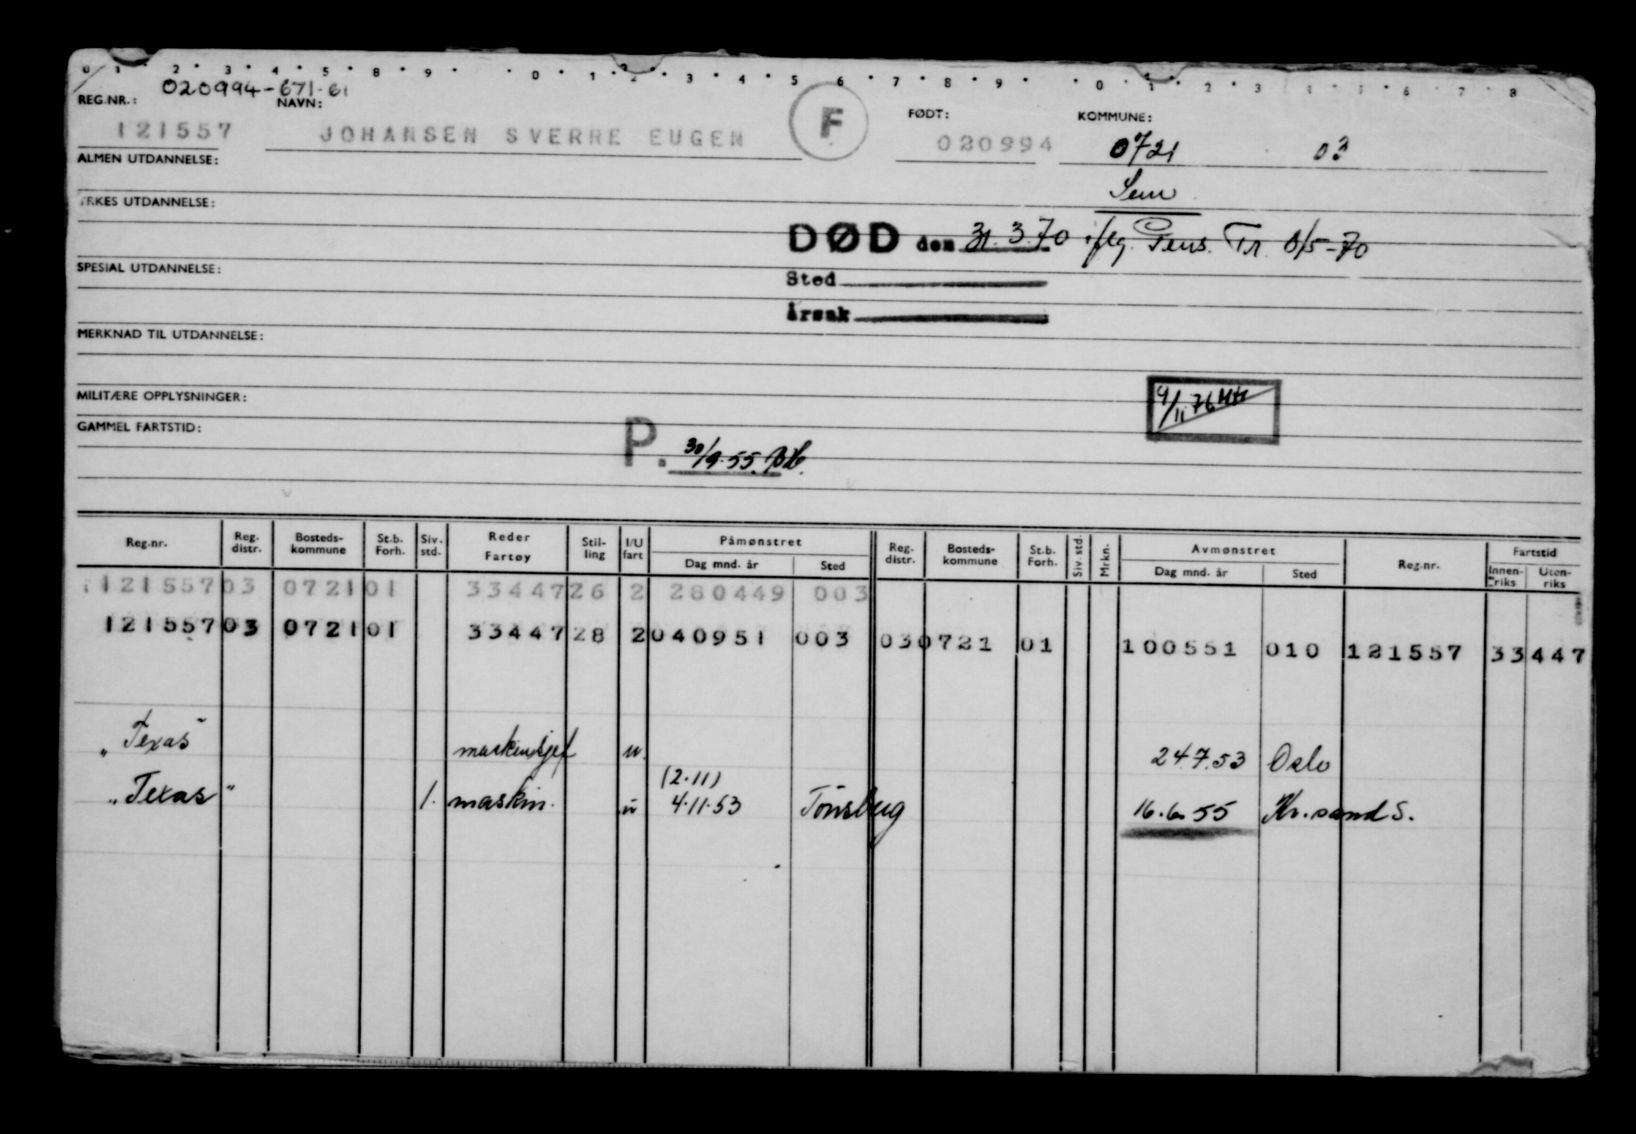 0 1 2 3 4 5 8 9 0 1 2 3 4 5 6 7 8 9 0 1 2 3 4 5 6 7 8
020994-671-61
REG.NR.: NAVN: FØDT: KOMMUNE:
121557 JOHANSEN SVERRE EUGEN F 020994 0721 03
ALMEN UTDANNELSE:
Sem
YRKES UTDANNELSE:
DØD den 31.3.70 iflg. Pens. Tr. 8/5-70
SPESIAL UTDANNELSE:
Sted
Årsak
MERKNAD TIL UTDANNELSE:
MILITÆRE OPPLYSNINGER:
4/11 76
GAMMEL FARTSTID:
P. 30/9.55.
Reg.nr. Reg. distr. Bosteds-kommune St.b. Forh. Siv. std. Reder Fartøy Stil-ling I/U fart Påmønstret Dag mnd. år Sted Reg. distr. Bosteds-kommune St.b. Forh. Siv. std. Mrkn. Avmønstret Dag mnd. år Sted Reg.nr. Fartstid Innen-riks Uten-riks
121557 03 0721 01 33447 26 2 280449 003
121557 03 0721 01 33447 28 2 040951 003 03 0721 01 100551 010 121557 33447
"Texas" maskinsjef u. 24.7.53 Oslo
(2.11)
"Texas" 1. maskin. u 4.11.53 Tönsberg 16.6.55 Kr.sand S.